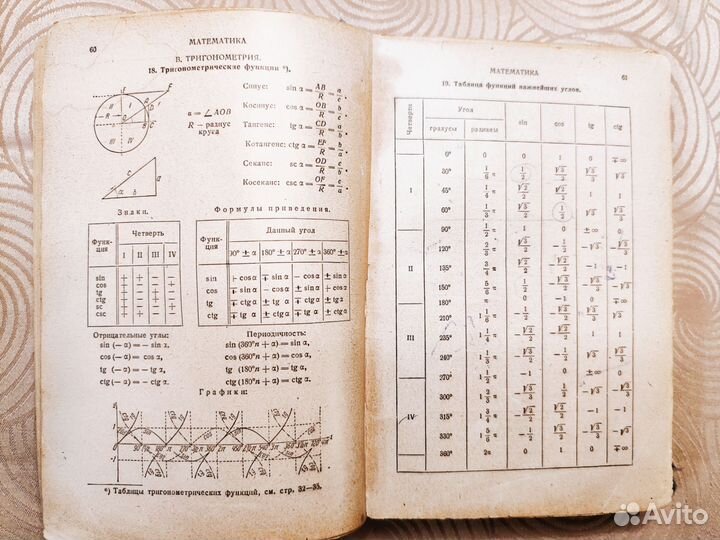 60
МАТЕМАТИКА
В. ТРИГОНОМЕТРИЯ.
18. Тригонометрические функции *).
α = ∠ AOB
R — радиус
круга
Синус: sin α = AB/R = a/c.
Косинус: cos α = OB/R = b/c.
Тангенс: tg α = CD/R = a/b.
Котангенс: ctg α = EF/R = b/a.
Секанс: sc α = OD/R = c/b.
Косеканс: csc α = OF/R = c/a.
Знаки.
Функция Четверть
I II III IV
sin + + − −
cos + − − +
tg + − + −
ctg + − + −
sc + − − +
csc + + − −
Формулы приведения.
Функция Данный угол
90° ± α 180° ± α 270° ± α 360° ± α
sin + cos α ∓ sin α − cos α ± sin α
cos ∓ sin α − cos α ± sin α + cos α
tg ∓ ctg α ± tg α ∓ ctg α ± tg α
ctg ∓ tg α ± ctg α ∓ tg α ± ctg α
Отрицательные углы:
sin (− α) = − sin α,
cos (− α) = cos α,
tg (− α) = − tg α,
ctg (− α) = − ctg α.
Периодичность:
sin (360°n + α) = sin α,
cos (360°n + α) = cos α,
tg (180°n + α) = tg α,
ctg (180°n + α) = ctg α.
Графики:
*) Таблицы тригонометрических функций, см. стр. 32—35.
МАТЕМАТИКА
61
19. Таблица функций важнейших углов.
Четверти Угол sin cos tg ctg
градусы радианы
I
0° 0 0 1 0 ∓ ∞
30° 1/6 π 1/2 √3/2 √3/3 √3
45° 1/4 π √2/2 √2/2 1 1
60° 1/3 π √3/2 1/2 √3 √3/3
90° 1/2 π 1 0 ± ∞ 0
II
120° 2/3 π √3/2 − 1/2 − √3 − √3/3
135° 3/4 π √2/2 − √2/2 − 1 − 1
150° 5/6 π 1/2 − √3/2 − √3/3 − √3
180° π 0 − 1 0 ∓ ∞
III
210° 1 1/6 π − 1/2 − √3/2 √3/3 √3
1 1/4 π − √2/2 − √2/2 1 1
240° 1 1/3 π − √3/2 − 1/2 √3 √3/3
270° 1 1/2 π − 1 0 ± ∞ 0
IV
300° 1 2/3 π − √3/2 1/2 − √3 − √3/3
315° 1 3/4 π − √2/2 √2/2 − 1 − 1
330° 1 5/6 π − 1/2 √3/2 − √3/3 − √3
360° 2π 0 1 0 ∓ ∞
Avito